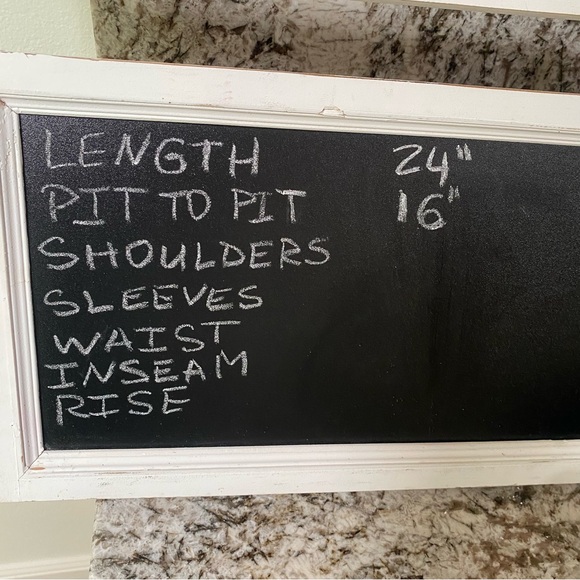 LENGTH 24"
PIT TO PIT 16"
SHOULDERS
SLEEVES
WAIST
INSEAM
RISE